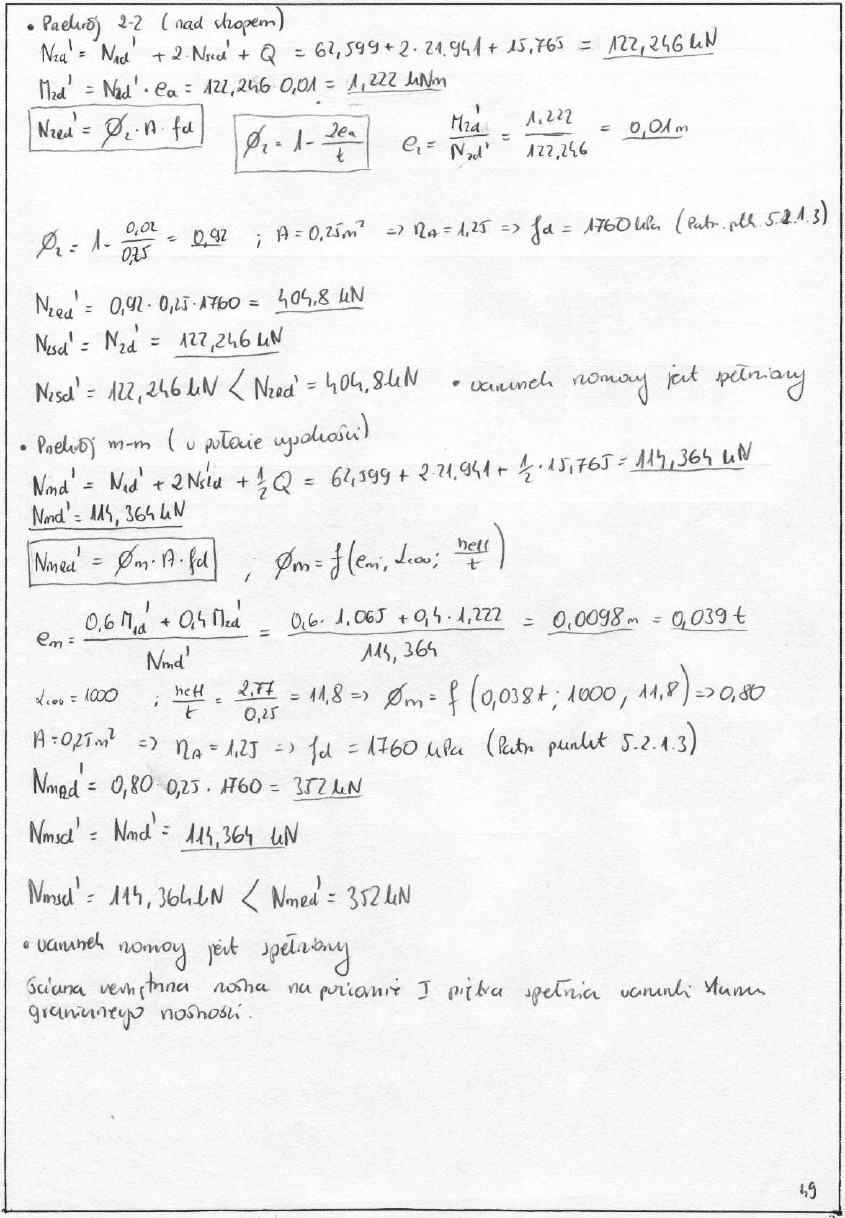 • Przekrój 2-2 (nad stropem)
N2d' = N1d' + 2·Nsld' + Q = 62,599 + 2·21,941 + 15,765 = 122,246 kN
M2d' = N2d' · ea = 122,246·0,01 = 1,222 kNm
N2Rd' = Ø2·A·fd Ø2 = 1 - 2ea/t e2 = M2d'/N2d' = 1.222/122,246 = 0,01 m
Ø2 = 1 - 0,02/0,25 = 0,92 ; A = 0,25m² => ηA = 1,25 => fd = 1760 kPa (Patrz pkt 5.2.1.3)
N2Rd' = 0,92·0,25·1760 = 404,8 kN
N2sd' = N2d' = 122,246 kN
N2sd' = 122,246 kN < N2Rd' = 404,8 kN • warunek normowy jest spełniony
• Przekrój m-m (w połowie wysokości)
Nmd' = N1d' + 2Nsld' + 1/2 Q = 62,599 + 2·21,941 + 1/2·15,765 = 114,364 kN
Nmd' = 114,364 kN
NmRd' = Øm·A·fd , Øm = f(em; αc∞; heff/t)
em = 0,6 M1d' + 0,4 M2d' / Nmd' = 0,6·1,065 + 0,4·1,222 / 114,364 = 0,0098 m = 0,039 t
αc∞ = 1000 ; heff/t = 2,77/0,25 = 11,8 => Øm = f(0,038t ; 1000, 11,8) => 0,80
A = 0,25m² => ηA = 1,25 => fd = 1760 kPa (Patrz punkt 5.2.1.3)
NmRd' = 0,80·0,25·1760 = 352 kN
Nmsd' = Nmd' = 114,364 kN
Nmsd' = 114,364 kN < NmRd' = 352 kN
• warunek normowy jest spełniony
Ściana wewnętrzna nośna na poziomie I piętra spełnia warunki stanu
granicznego nośności.
49